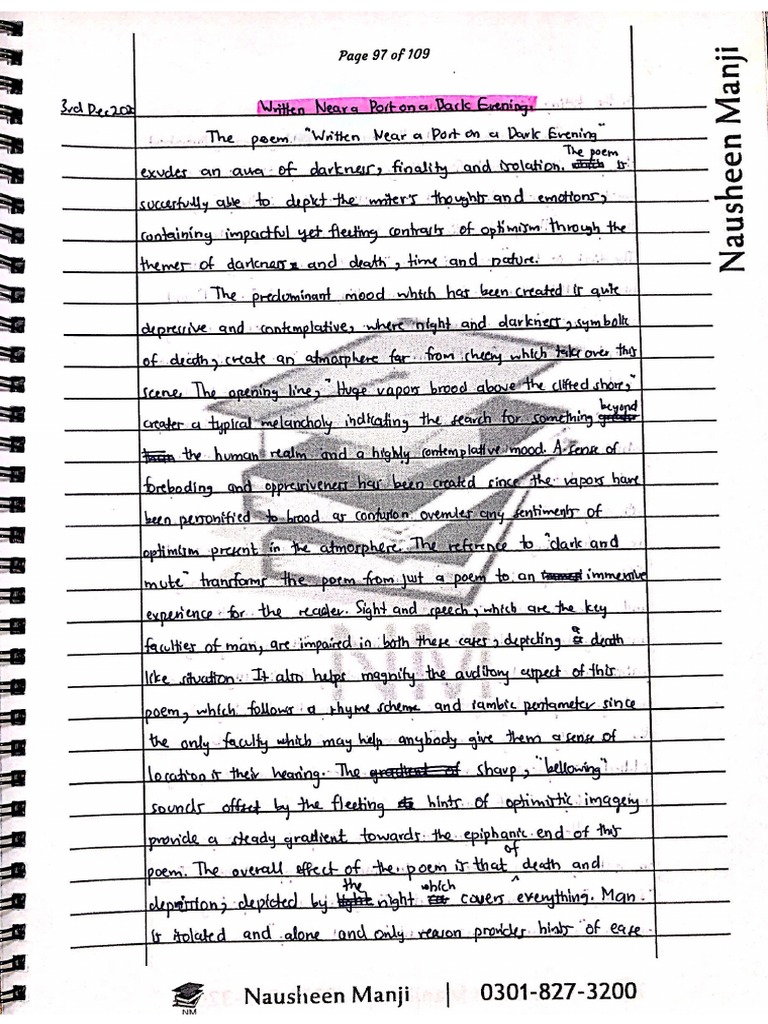 Page 97 of 109
Nausheen Manji
3rd Dec 202
Written Near a Port on a Dark Evening.
The poem "Written Near a Port on a Dark Evening"
exudes an aura of darkness, finality and isolation. The poem is
succesfully able to depict the writer's thoughts and emotions,
containing impactful yet fleeting contrasts of optimism through the
themes of darkness and death, time and nature.
The predominant mood which has been created is quite
depressive and contemplative, where night and darkness, symbolic
of death, create an atmosphere far from cheery which takes over this
scene. The opening line, "Huge vapors brood above the clifted shore,"
creates a typical melancholy indicating the search for something beyond
the human realm and a highly contemplative mood. A sense of
foreboding and oppressiveness has been created since the vapors have
been personified to brood as confusion overrules any sentiments of
optimism present in the atmosphere. The reference to "dark and
mute" transforms the poem from just a poem to an immersive
experience for the reader. Sight and speech, which are the key
faculties of man, are impaired in both these cases, depicting a death
like situation. It also helps magnify the auditory aspect of this
poem, which follows a rhyme scheme and iambic pentameter since
the only faculty which may help anybody give them a sense of
location is their hearing. The sharp, "bellowing"
sounds offset by the fleeting hints of optimistic imagery
provide a steady gradient towards the epiphanic end of this
poem. The overall effect of the poem is that of death and
depression; depicted by the night which covers everything. Man
is isolated and alone and only reason provides hints of ease
NM
NM
Nausheen Manji | 0301-827-3200